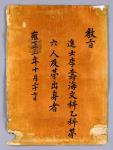 敎旨
進士李壽海文科乙科第
六人及第出身者
雍正三年十月二十七日